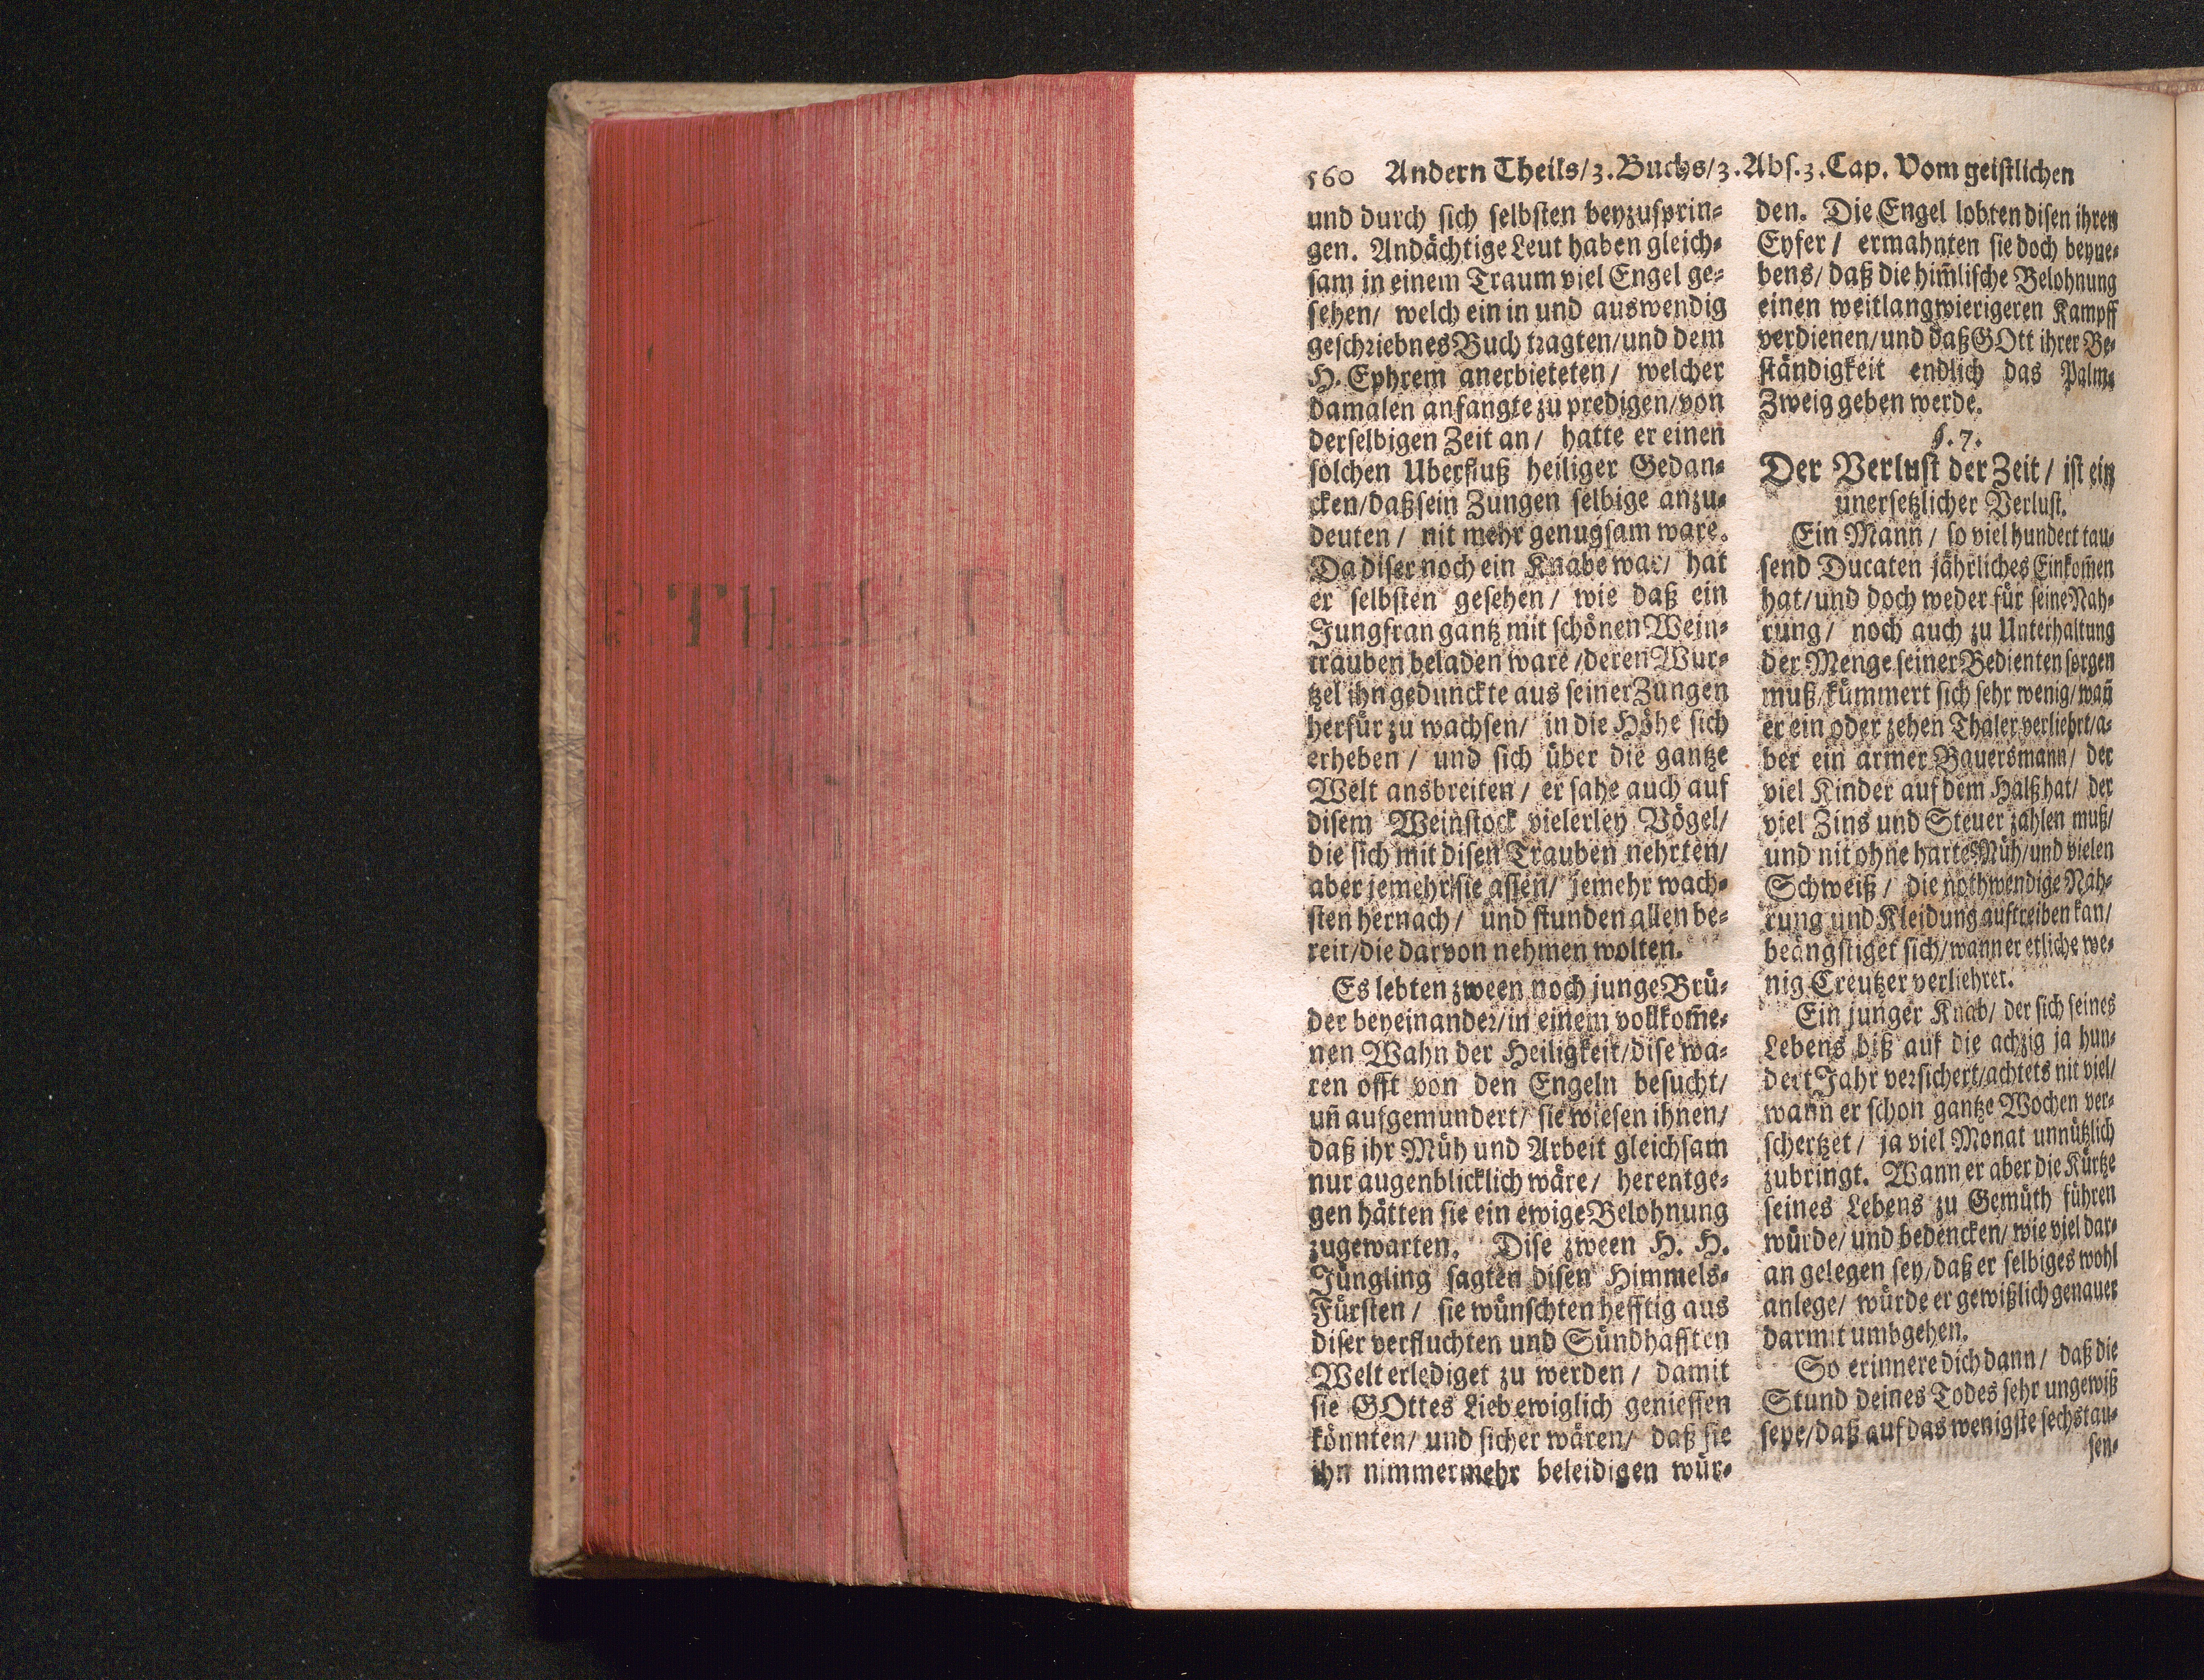 560 Andern Theils/3.Buchs/3.Abs.3.Cap. Vom geistlichen
und durch sich selbsten beyzusprin-
gen. Andächtige Leut haben gleich-
sam in einem Traum viel Engel ge-
sehen/ welch ein in und auswendig
geschriebnes Buch tragten/und dem
H. Ephrem anerbieteten/ welcher
damalen anfangte zu predigen/von
derselbigen Zeit an/ hatte er einen
solchen Uberfluß heiliger Gedan-
cken/daß sein Zungen selbige anzu-
deuten/ nit mehr genugsam ware.
Da diser noch ein Knabe war/ hat
er selbsten gesehen/ wie daß ein
Jungfran gantz mit schönen Wein-
trauben beladen ware/deren Wur-
tzel ihn gedunckte aus seiner Zungen
herfür zu wachsen/ in die Höhe sich
erheben/ und sich über die gantze
Welt ansbreiten/ er sahe auch auf
disem Weinstock vielerley Vögel/
die sich mit disen Trauben nehrten/
aber jemehr sie assen/ jemehr wach-
sten hernach/ und stunden allen be-
reit/die darvon nehmen wolten.
Es lebten zween noch junge Brü-
der beyeinander/in einem vollkom̃e-
nen Wahn der Heiligkeit/dise wa-
ren offt von den Engeln besucht/
uñ aufgemundert/ sie wiesen ihnen/
daß ihr Müh und Arbeit gleichsam
nur augenblicklich wäre/ herentge-
gen hätten sie ein ewige Belohnung
zugewarten. Dise zween H. H.
Jüngling sagten disen Himmels-
Fürsten/ sie wünschten hefftig aus
diser verfluchten und Sündhafften
Welt erlediget zu werden/ damit
sie GOttes Lieb ewiglich geniessen
könnten/ und sicher wären/ daß sie
ihn nimmermehr beleidigen wür-
den. Die Engel lobten disen ihren
Eyfer/ ermahnten sie doch beyne-
bens/ daß die him̃lische Belohnung
einen weitlangwierigeren Kampff
verdienen/und daß GOtt ihrer Be-
ständigkeit endlich das Palm-
Zweig geben werde.
§. 7.
Der Verlust der Zeit/ ist ein
unersetzlicher Verlust.
Ein Mann/ so viel hundert tau-
send Ducaten jährliches Einkom̃en
hat/und doch weder für seine Nah-
rung/ noch auch zu Unterhaltung
der Menge seiner Bedienten sorgen
muß/kümmert sich sehr wenig/wañ
er ein oder zehen Thaler verliehrt/a-
ber ein armer Bauersmann/ der
viel Kinder auf dem Halß hat/ der
viel Zins und Steuer zahlen muß/
und nit ohne harte Müh/und vielen
Schweiß/ die nothwendige Nah-
rung und Kleidung auftreiben kan/
beängstiget sich/wann er etliche we-
nig Creutzer verliehret.
Ein junger Knab/ der sich seines
Lebens biß auf die achzig ja hun-
dert Jahr versichert/achtets nit viel/
wann er schon gantze Wochen ver-
schertzet/ ja viel Monat unnützlich
zubringt. Wann er aber die Kürtze
seines Lebens zu Gemüth führen
würde/ und bedencken/ wie viel dar-
an gelegen sey/daß er selbiges wohl
anlege/ würde er gewißlich genauer
darmit umbgehen.
So erinnere dich dann/ daß die
Stund deines Todes sehr ungewiß
seye/daß auf das wenigste sechstau-
sen-